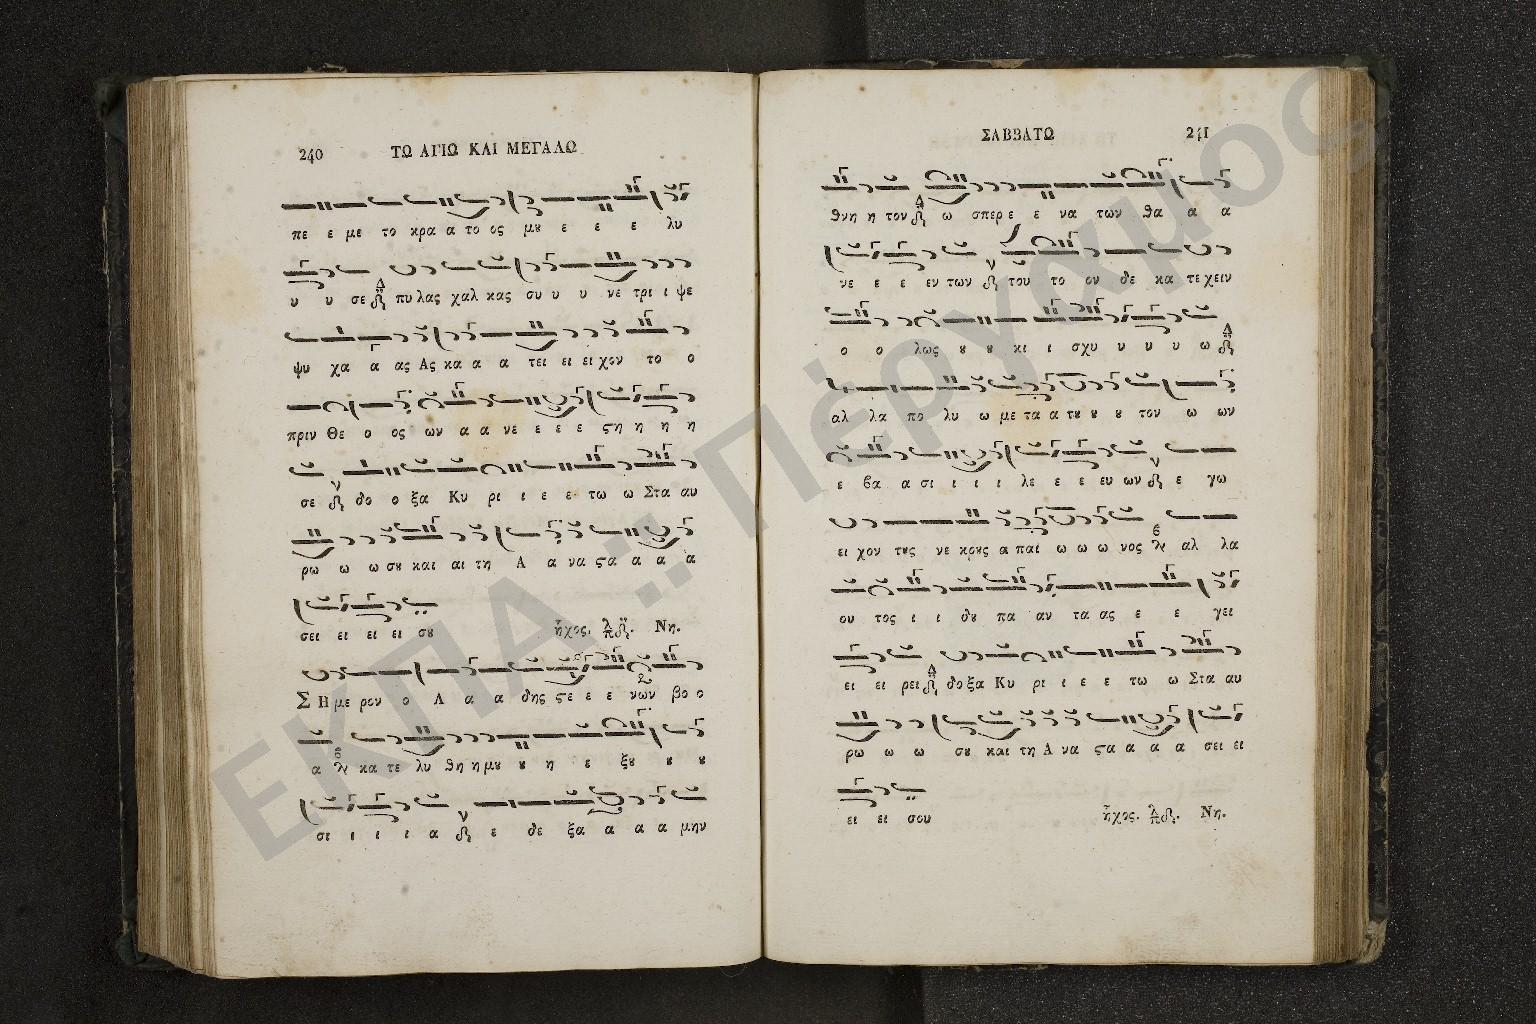 240 ΤΩ ΑΓΙΩ ΚΑΙ ΜΕΓΑΛΩ
πε ε με το κρα α το ος μȣ ε ε ε λυ
υ υ σε πυ λας χαλ κας συ υ υ νε τρι ι ψε
ψυ χα α ας Ας κα α α τει ει ει χον το ο
πριν Θε ο ος ων α α νε ε ε ε ϛη η η η
σε δο ο ξα Κυ ρι ι ε ε τω ω Στα αυ
ρω ω ω σȣ και αι τη Α α να ϛα α α α
σει ει ει ει σȣ ἦχος. Νη.
Σ Η με ρον ο Α α α δης ϛε ε ε νων βο ο
α κα τε λυ θη η μȣ ȣ η ε ξȣ ȣ ȣ
σι ι ι ι α ε δε ξα α α α μην
ΣΑΒΒΑΤΩ 241
θνη η τον ω σπερ ε ε να των θα α α
νε ε ε εν των τοῦ το ον δε κα τε χειν
ο ο λως ȣ ȣ κι ι σχυ υ υ υ ω
αλ λα πο λυ ω με τα α τȣ ȣ ȣ τον ω ων
ε βα α σι ι ι ι λε ε ε ευ ων ε γω
ει χον τȣς νε κρȣς α παι ω ω ω νος αλ λα
ου τος ι ι δȣ πα αν τα ας ε ε γει
ει ει ρει δο ξα Κυ ρι ι ε ε τω ω Στα αυ
ρω ω ω σȣ και τη Α να ϛα α α α σει ει
ει ει σου ἦχος. Νη.
ΕΚΠΑ :: Πέργαμος